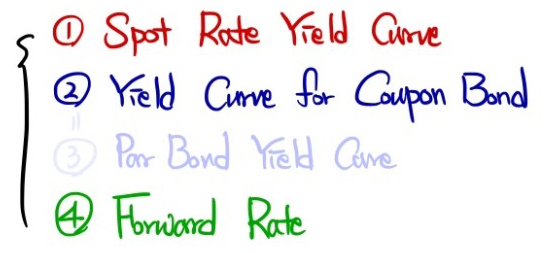 ① Spot Rate Yield Curve
② Yield Curve for Coupon Bond
=
③ Par Bond Yield Curve
④ Forward Rate